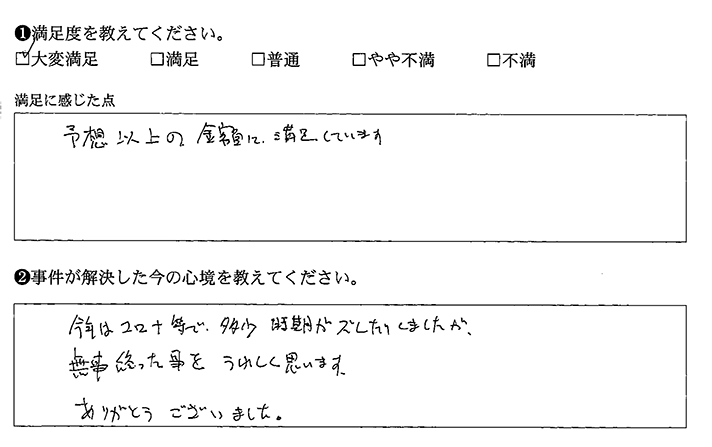 ❶満足度を教えてください。
☑大変満足 □満足 □普通 □やや不満 □不満
満足に感じた点
予想以上の金額に満足しています
❷事件が解決した今の心境を教えてください。
今年はコロナ等で、多少時期がズレたりしましたが、
無事終った事をうれしく思います。
ありがとうございました。